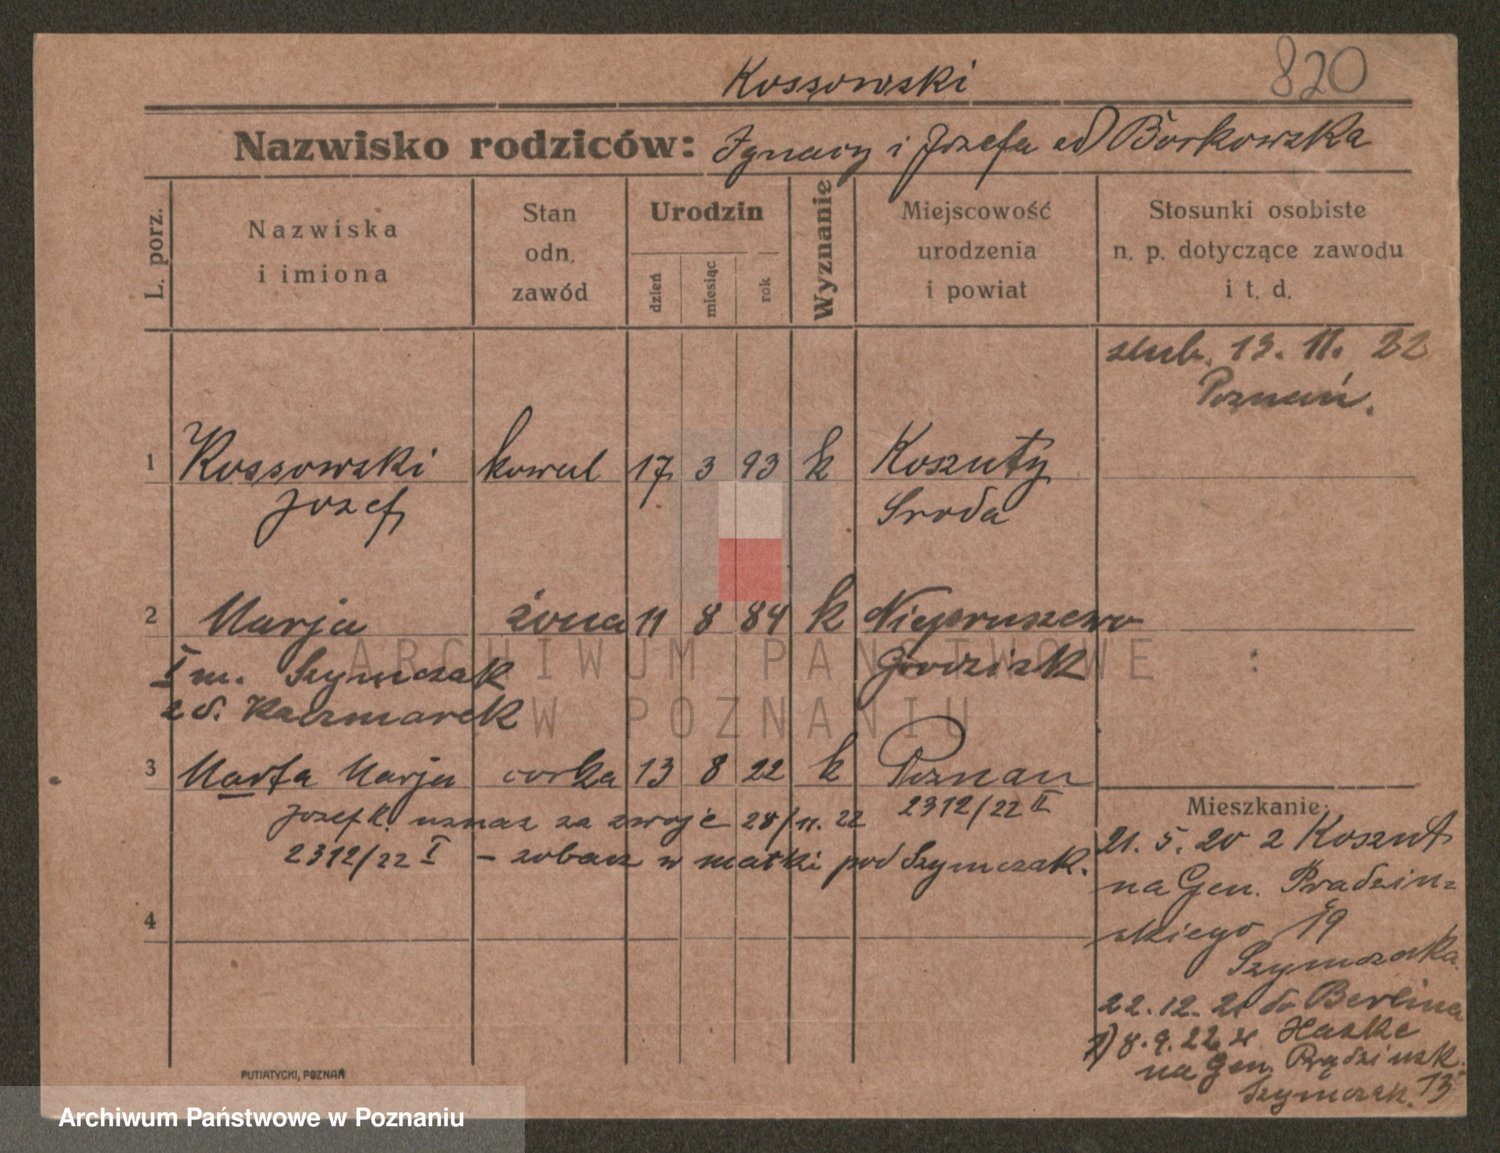 Kossowski
820
Nazwisko rodziców: Ignacy i Jozefa od Borkowska
L. porz.
Nazwiska i imiona
Stan odn. zawód
Urodzin
dzień
miesiąc
rok
Wyznanie
Miejscowość urodzenia i powiat
Stosunki osobiste n. p. dotyczące zawodu i t. d.
slub. 13. 11. 22
Poznań.
1 Kossowski kowal 17 3 93 k Koszuty
Jozef Sroda
2 Marja żona 11 8 84 k Niepruszewo
I m. Szymczak Grodzisk
z d. Kaczmarek
3 Marta Marja corka 13 8 22 k Poznan
Jozef K. uznał za swoje 28/11. 22 2312/22 II
2312/22 I – zobacz w matki pod Szymczak.
4
Mieszkanie:
21. 5. 20 z Koszut
na Gen. Prądzin-
skiego 19
Szymczaka
22. 12. 21 do Berlina
8. 9. 22 z Haske
na Gen. Prądzinsk.
Szymczak. 13
PUTIATYCKI, POZNAŃ
ARCHIWUM PAŃSTWOWE
W POZNANIU
Archiwum Państwowe w Poznaniu